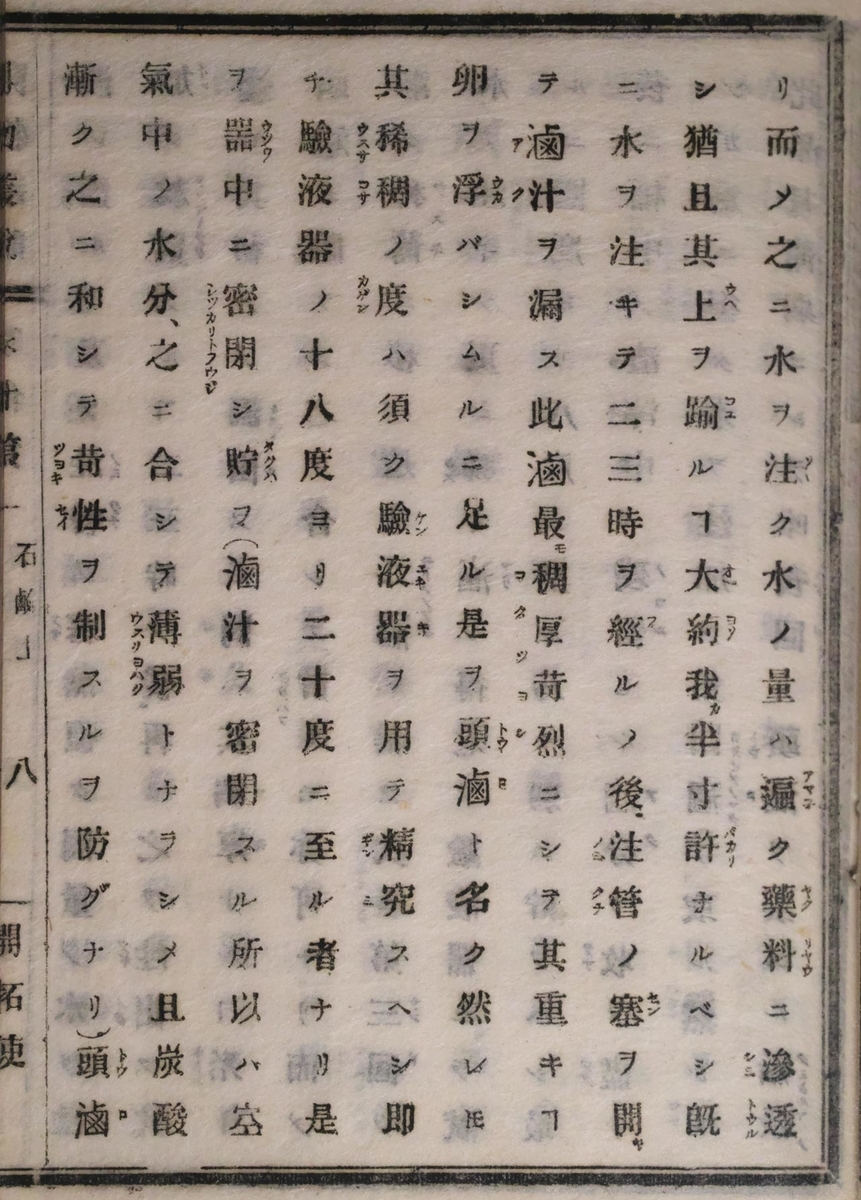 リ而メ之ニ水ヲ注ク水ノ量ハ遍ク藥料ニ滲透
シ猶且其上ヲ踰ルヿ大約我半寸許ナルベシ既
ニ水ヲ注キテ二三時ヲ經ルノ後、注管ノ塞ヲ開
テ滷汁ヲ漏ス此滷最稠厚苛烈ニシテ其重キヿ
卵ヲ浮バシムルニ足ル是ヲ頭滷ト名ク然レ𪜈
其稀稠ノ度ハ須ク驗液器ヲ用テ精究スヘシ即
チ驗液器ノ十八度ヨリ二十度ニ至ル者ナリ是
ヲ器中ニ密閉シ貯フ(滷汁ヲ密閉スル所以ハ空
氣中ノ水分、之ニ合シテ薄弱トナラシメ且炭酸
漸ク之ニ和シテ苛性ヲ制スルヲ防グナリ)頭滷
石鹼 八 開拓使